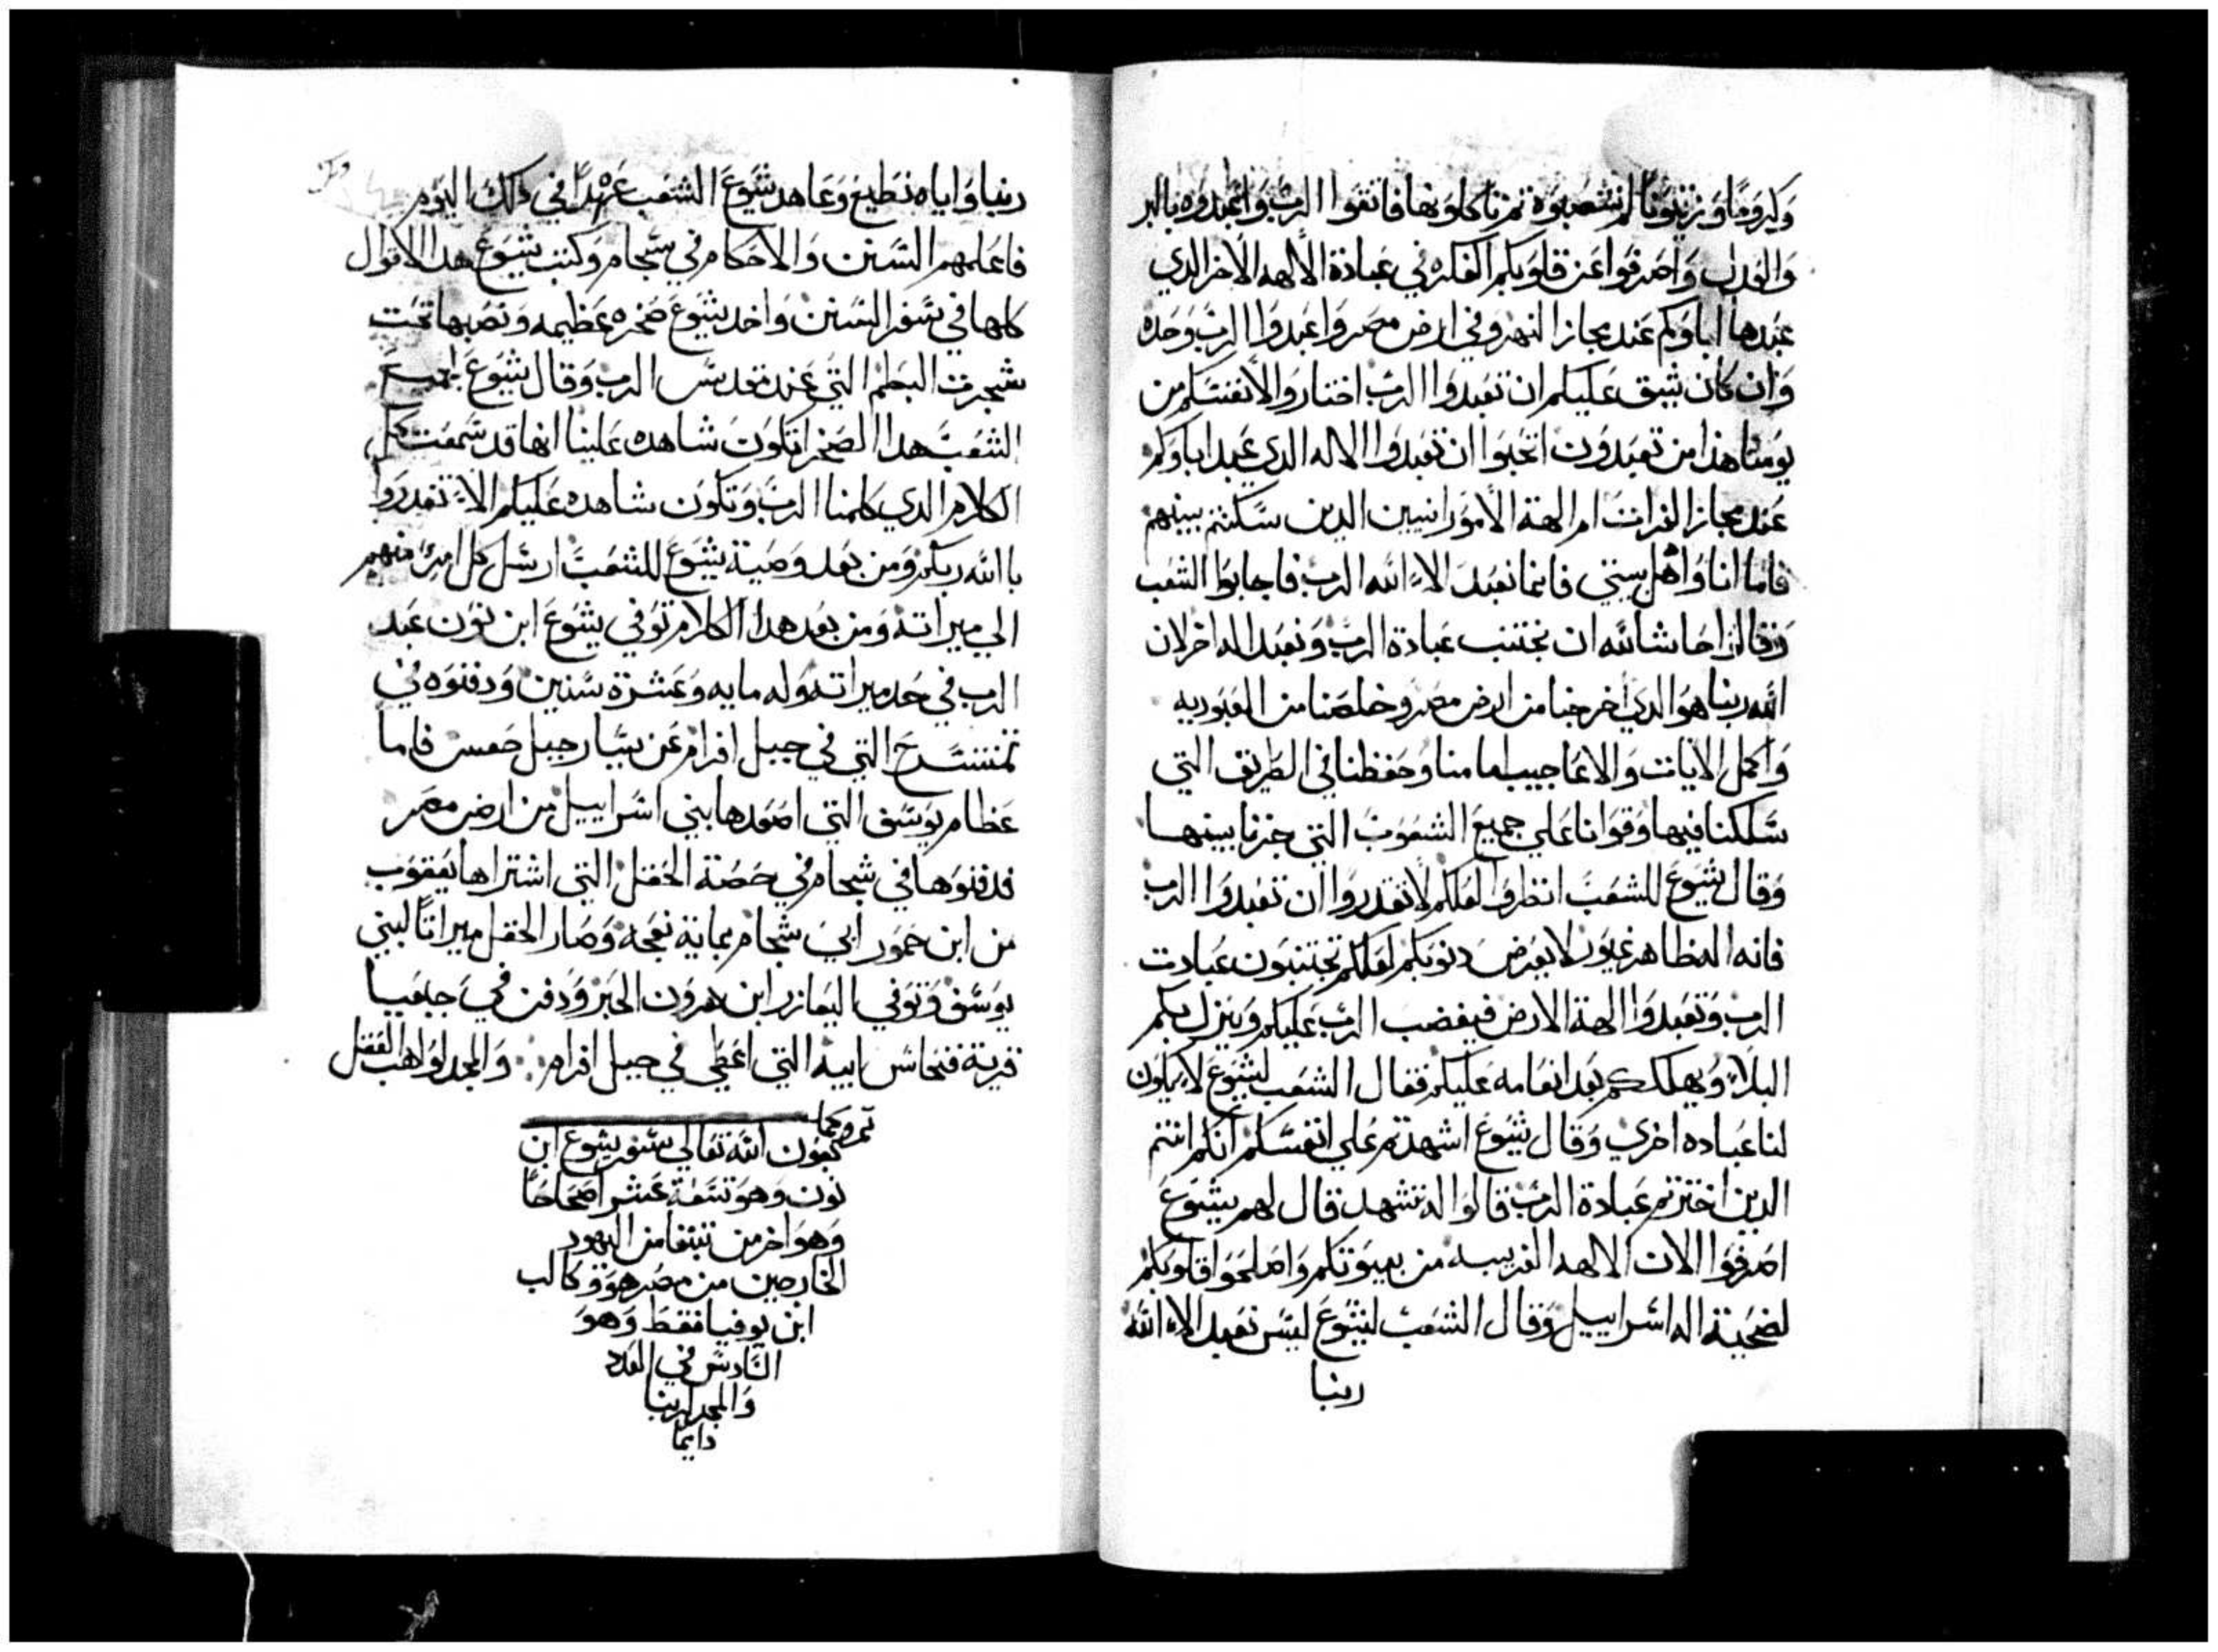 وكرومًا وزيتونًا لم تنصبوه ثم تاكلونها فاتقوا الرب واعبدوه بالبر
والعدل واصرفوا عن قلوبكم الفكره في عبادة الالهه الاخر الذي
عبدها اباوكم عند مجاز النهر وفي ارض مصر واعبدوا الرب وحده
وان كان شق عليكم ان تعبدوا الرب اختاروا لانفسكم من
يومنا هذا من تعبدون اتحبوا ان تعبدوا الاله الدي عبد اباوكم
عند مجاز الفرات ام الهة الامورانيين الدين سكنتم بينهم
فاما انا واهل بيتي فانما نعبد الاء الله الرب فاجابوا الشعب
وقالوا حاشا لله ان نجتنب عبادة الرب ونعبد اله اخر لان
الله ربنا هو الدي اخرجنا من ارض مصر وخلصنا من العبوديه
واكمل الايات والاعاجيب امامنا وحفظنا في الطريق التي
سلكنا فيها وقوانا علي جميع الشعوب التي جزنا بينها
وقال يشوع للشعب انظروا لعلكم لا تقدروا ان تعبدوا الرب
فانه اله طاهر غيور لا يعرض دنوبكم لعلكم تجتنبون عبادت
الرب وتعبدوا الهة الارض فيغضب الرب عليكم وينزل بكم
البلاء ويهلككم بعد انعامه عليكم فقال الشعب ليشوع لا يكون
لنا عباده اخري وقال يشوع اشهدتم علي انفسكم انكم انتم
الدين اخترتم عبادة الرب قالوا له نشهد قال لهم يشوع
اصرفوا الان الالهه الغريبه من بيوتكم واصلحوا قلوبكم
لضحية اله اسراييل وقال الشعب ليشوع ليس نعبد الاء الله
ربنا
ربنا واياه نطيع وعاهد يشوع الشعب عهدًا في دلك اليوم
فاعلمهم السنن والاحكام في سجام وكتب يشوع هدا الاقوال
كلها في سفر السنن واخد يشوع صخره عظيمه ونصبها تحت
شجرت البطم التي عند مقدس الرب وقال يشوع لجميع
الشعب هدا الصخر تكون شاهده علينا انها قد سمعت كل
الكلام الدي كلمنا الرب وتكون شاهده عليكم الاء تغدروا
با الله ربكم ومن بعد وصية يشوع للشعب ارسل كل امرئ منهم
الي ميراته ومن بعد هدا الكلام توفي يشوع ابن نون عبد
الرب في حد ميراته وله مايه وعشرة سنين ودفنوه في
تمنتسرح التي في جبل افرام عن يسار جبل جعس فاما
عظام يوسف التي اصعدها بني اسراييل من ارض مصر
فدفنوها في شجام في حصة الحقل التي اشتراها يعقوب
من ابن حمور ابي شجام بماية نعجه وصار الحقل ميراتًا لبني
يوسف وتوفي اليعازر ابن هرون الحبر ودفن في جبعيا
قرية فنحاس ابيه التي اعطي في جبل افرام والمجد لواهب العقل
تم وكمل
بعون الله تعالي سفر يشوع ابن
نون وهو تسعة عشر اصحاحًا
وهو اخر من تبقا من اليهود
الخارجين من مصر هو وكالب
ابن يوفيا فقط وهو
السادس في العدد
والمجد لربنا
دايمًا